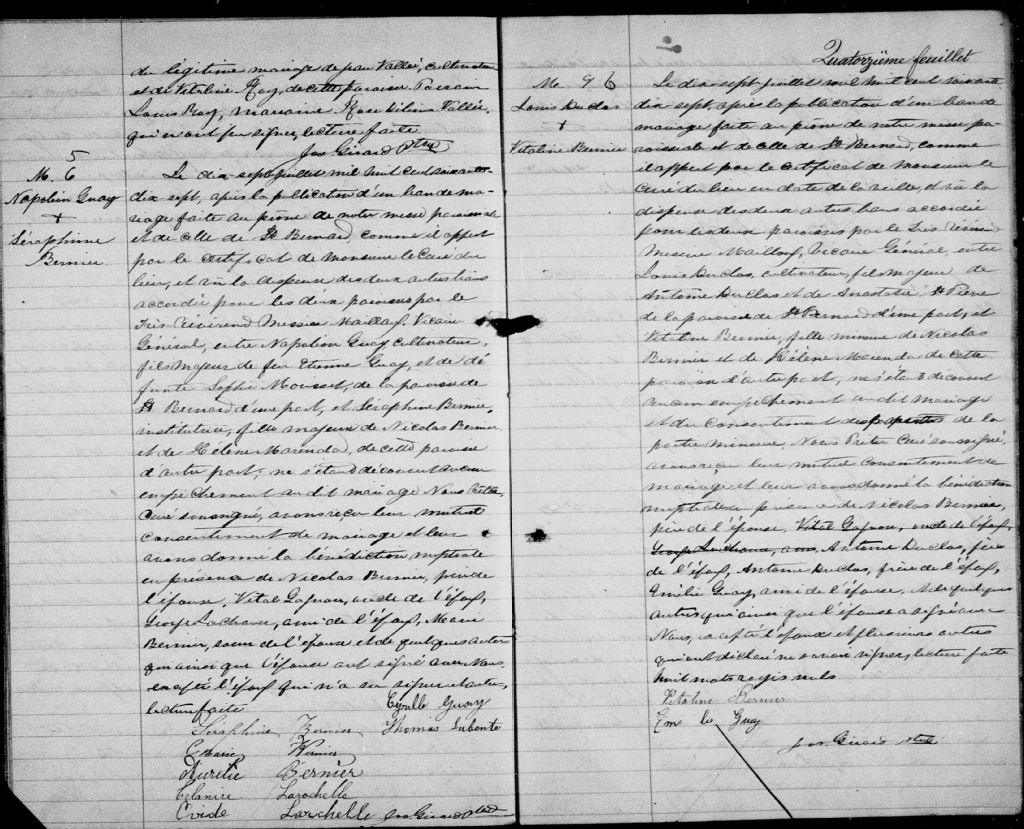 du légitime mariage de Jean Vallée, cultivateur
et de Vitaline Roy, de cette paroisse. Parrain
Louis Roy, marraine Rose Délima Vallée,
qui n'ont su signer, lecture faite.
Jos Girard Ptre
M. 5
6
Napoléon Guay
+
Séraphine
Bernier
Le dix sept juillet mil huit cent soixante
dix sept, après la publication d'un ban de ma-
riage faite au prône de notre messe paroissiale
et de celle de St Bernard, comme il appert
par le certificat de monsieur le Curé du
lieu, et vu la dispense des deux autres bans
accordée pour les deux paroisses par le
Très révérend Messire Mailloux, Vicaire
Général, entre Napoléon Guay cultivateur,
fils majeur de feu Etienne Guay, et de dé
funte Sophie Mousset, de la paroisse de
St Bernard d'une part, et Séraphine Bernier,
institutrice, fille majeure de Nicolas Bernier,
et de Hélène Marenda, de cette paroisse
d'autre part; ne s'étant découvert aucun
empêchement au dit mariage Nous Prêtre,
Curé soussigné, avons reçu leur mutuel
consentement de mariage et leur
avons donné la bénédiction nuptiale
en présence de Nicolas Bernier, père de
l'épouse, Vital Gagnon, oncle de l'époux,
George Lachance, ami de l'époux, Marie
Bernier, soeur de l'épouse et de quelques autres
qui ainsi que l'épouse ont signé avec Nous,
excepté l'époux qui n'a su signer et autres,
lecture faite
Cyrille Guay
Séraphine Bernier Thomas Labonté
Marie Bernier
Aurélie Bernier
Larochelle
Ovide Larochelle Jos Girard Ptre
Quatorzième feuillet
M. 96
Louis Duclos
+
Vitaline Bernier
Le dix sept juillet mil huit cent soixante
dix sept, après la publication d'un ban de
mariage faite au prône de notre messe pa-
roissiale et de celle de St Bernard, comme
il appert par le certificat de monsieur le
Curé du lieu en date de la veille, et vu la
dispense des deux autres bans accordée
pour les deux paroisses par le Très révérend
Messire Mailloux, Vicaire Général, entre
Louis Duclos, cultivateur, fils majeur de
Antoine Duclos et de Anastasie St Pierre
de la paroisse de St Bernard d'une part, et
Vitaline Bernier, fille mineure de Nicolas
Bernier et de Hélène Marenda de cette
paroisse d'autre part; ne s'étant découvert
aucun empêchement au dit mariage
et du consentement des parents de la
partie mineure, Nous Prêtre Curé soussigné,
avons reçu leur mutuel consentement de
mariage et leur avons donné la bénédiction
nuptiale en présence de Nicolas Bernier,
père de l'épouse, Vital Gagnon, oncle de l'époux,
George Lachance, ami, Antoine Duclos, père
de l'époux, Antoine Duclos, frère de l'époux,
Emilie Guay, amie de l'épouse, et de quelques
autres qui ainsi que l'épouse a signé avec
Nous, excepté l'époux et plusieurs autres
qui ont déclaré ne savoir signer, lecture faite
huit mots rayés nuls
Vitaline Bernier
Guay
Jos. Girard Ptre